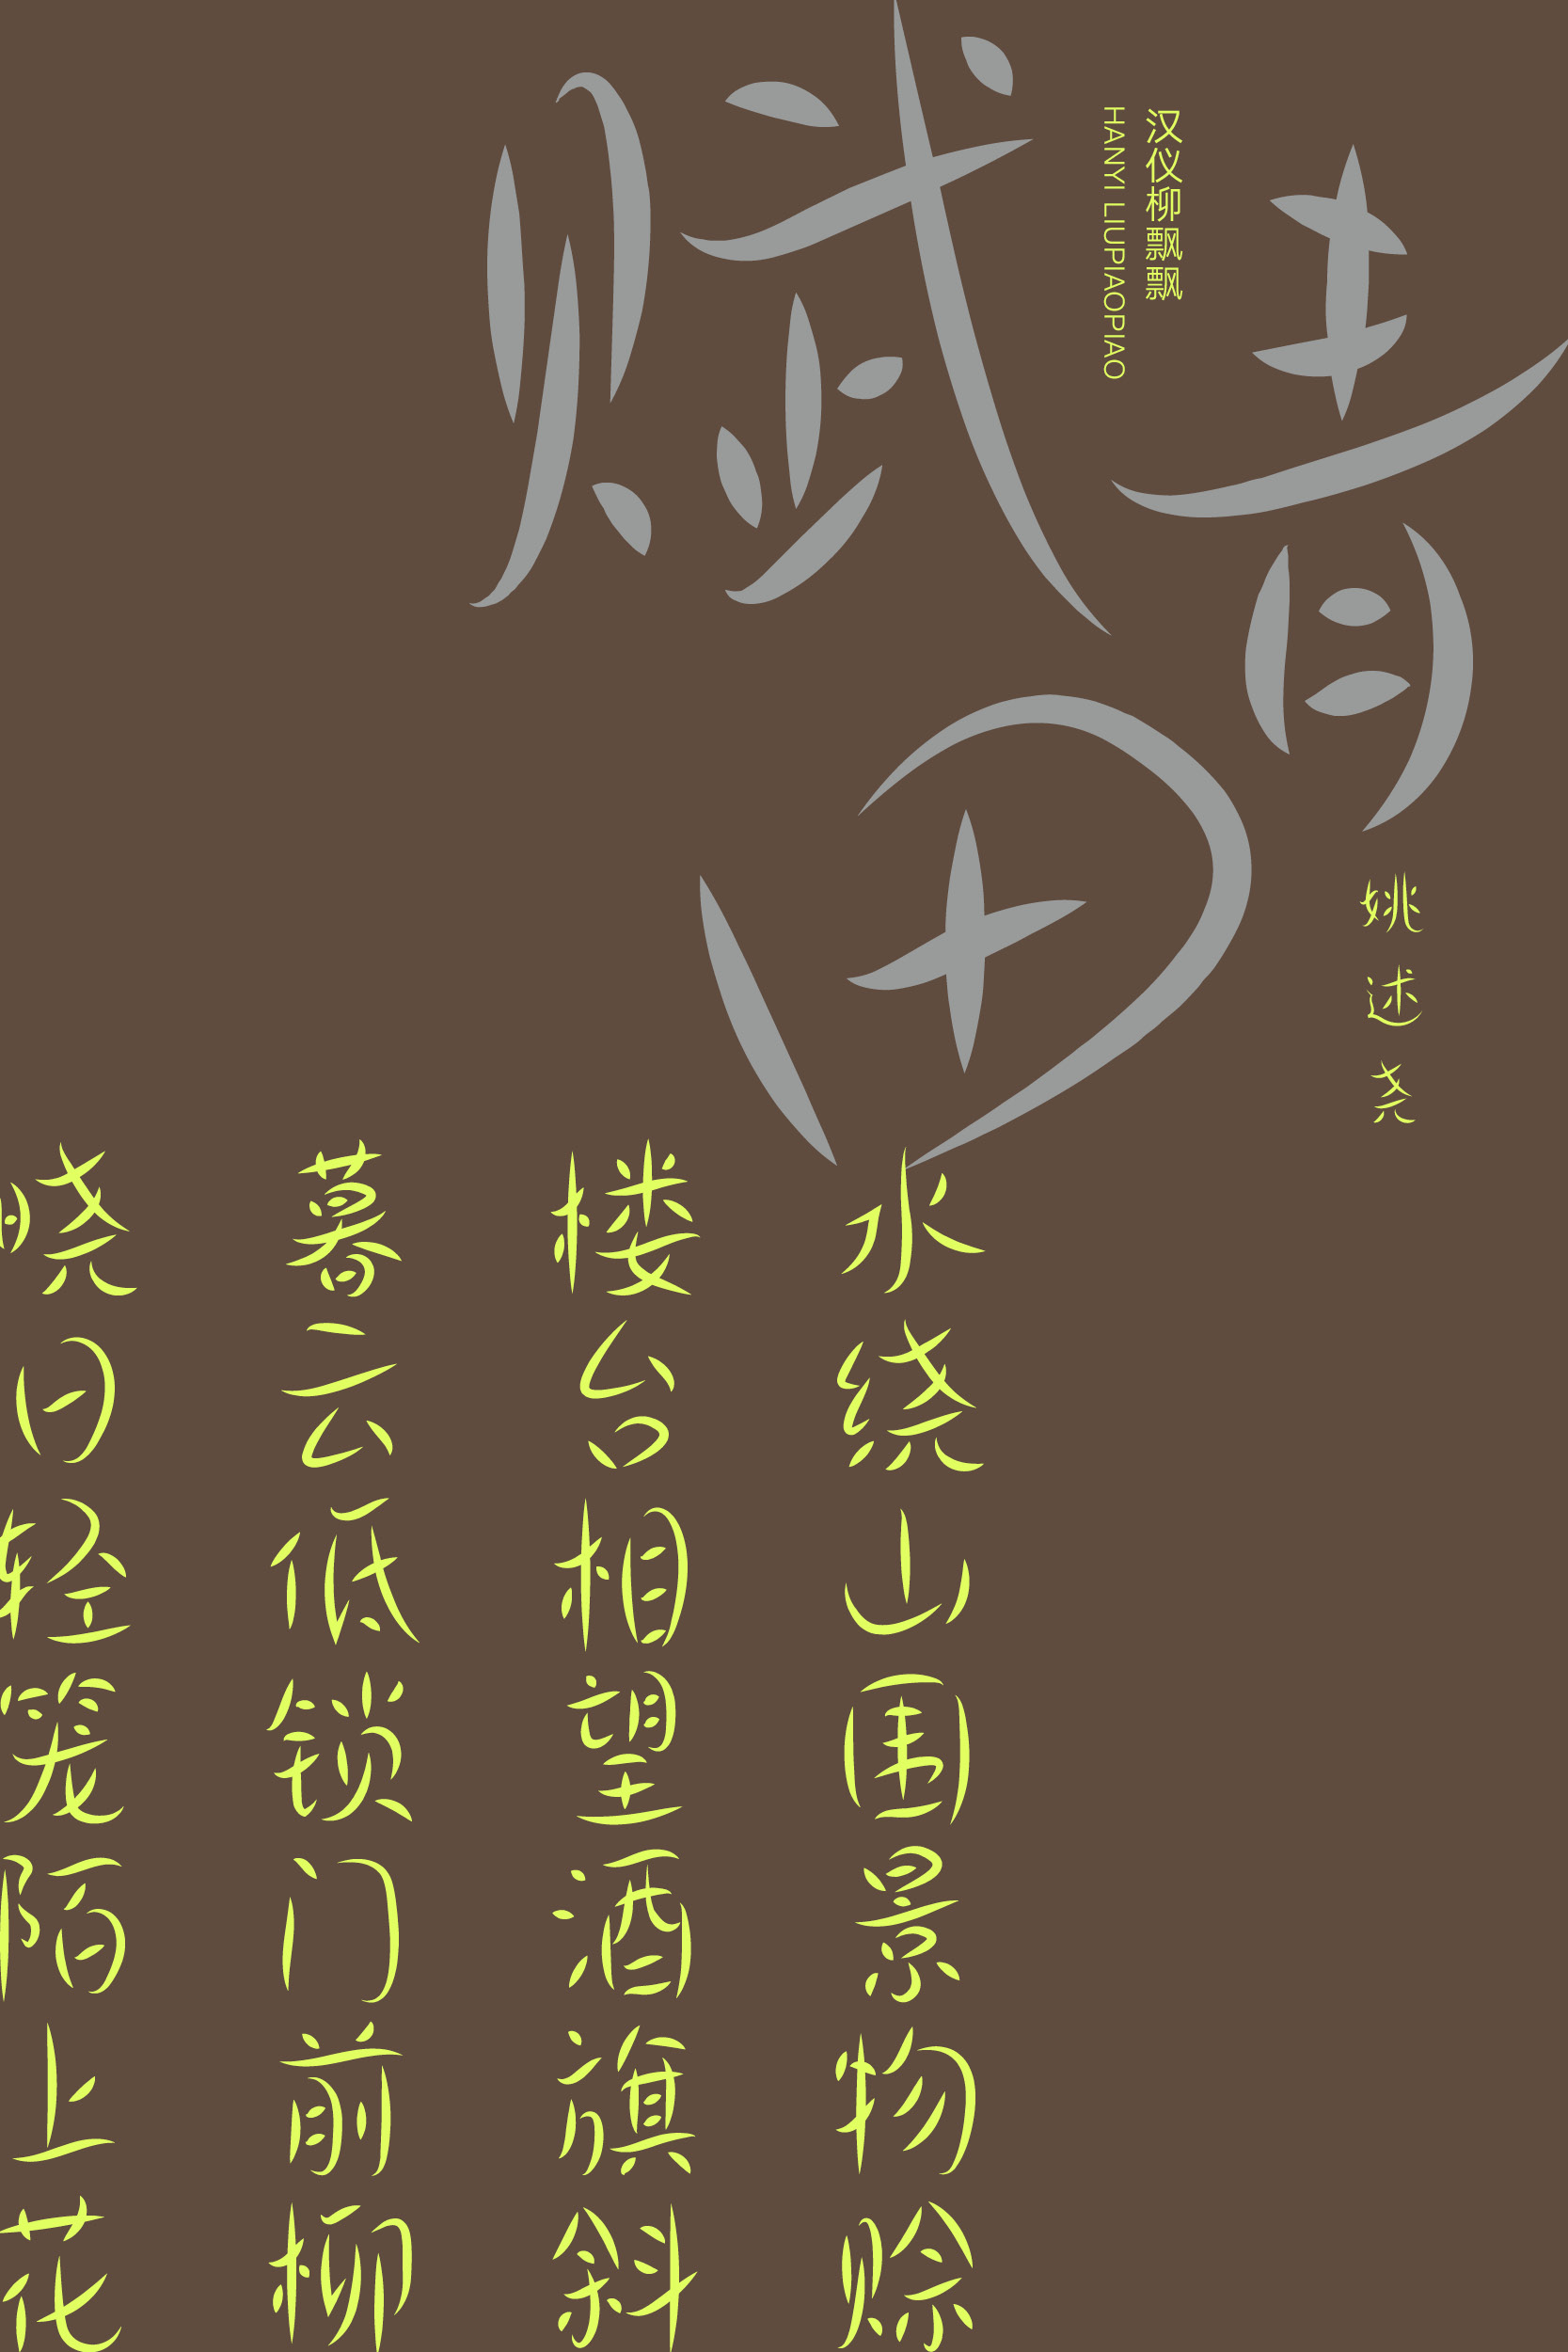 青田赋
汉仪柳飘飘
HANYI LIUPIAOPIAO
姚述尧
水绕山围景物赊
楼台相望酒旗斜
暮云低锁门前柳
晓日轻笼陌上花